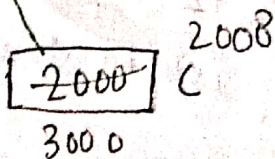 200B
2000 C
3000